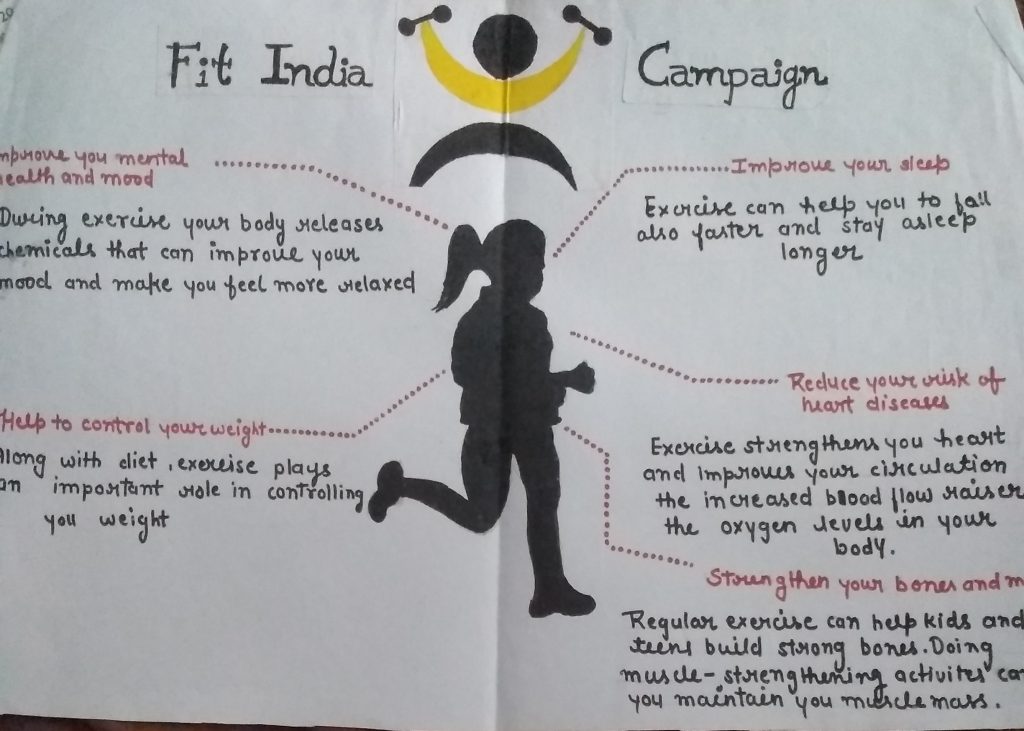 Fit India Campaign
mprove you mental
ealth and mood
During exercise your body releases
chemicals that can improve your
mood and make you feel more relaxed
Help to control your weight
Along with diet , exercise plays
an important role in controlling
you weight
Improve your sleep
Exercise can help you to fall
also faster and stay asleep
longer
Reduce your risk of
heart diseases
Exercise strengthens you heart
and improves your circulation
the increased blood flow raiser
the oxygen levels in your
body.
Strengthen your bones and m
Regular exercise can help kids and
teens build strong bones. Doing
muscle-strengthening activites ca
you maintain you muscle mass.